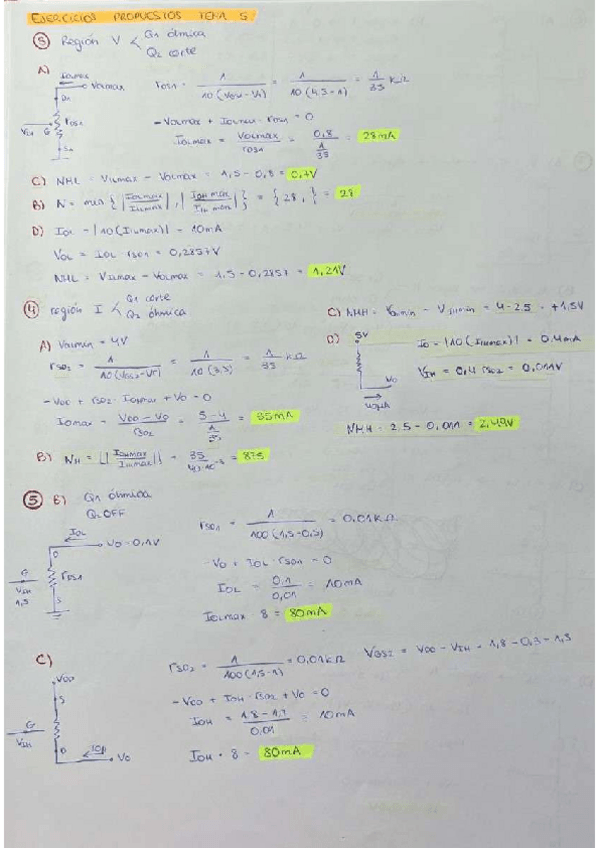 EJERCICIOS PROPUESTOS TEMA 5
③ Región V < Q1 óhmica
Q2 corte
A)
IOLmax
VOLmax
rDS1 = 1 / 10(VGH - Vt) = 1 / 10(4.5-1) = 1/35 KΩ
rDS1
G
-VOLmax + IOLmax · rDS1 = 0
IOLmax = VOLmax / rDS1 = 0,8 / (1/35) = 28mA
C) NML = VILmax - VOLmax = 1,5 - 0,8 = 0,7V
B) N = min { |IOLmax / IILmax|, |IOHmax / IIHmax| } = { 28, } = 28
D) IOL = |10(IILmax)| = 10mA
VOL = IOL · rDS1 = 0,2857V
NML = VILmax - VOLmax = 1.5 - 0,2857 = 1,21V
④ región I < Q1 corte
Q2 óhmica
A) VOHmin = 4V
rSD2 = 1 / 10(VSG2-VT) = 1 / 10(3.5) = 1/35 KΩ
-VDD + rSD2 · IOHmax + VO = 0
IOHmax = VDD - VO / rSD2 = 5-4 / = 35mA
B) NH = ||IOHmax / IIHmax|| = 35 / = 875
C) NMH = - = 4-2.5 = +1,5V
D)
5V
VO
40μA
IO = |10(IIHmax)| = 0.4mA
VIH = 0,4 · rSD2 = 0,011V
NMH = 2.5 - 0,011 = 2,49V
⑤ B) Q1 óhmica
Q2 OFF
IOL
VO = 0,1V
D
rDS1
G
S
1,5
rDS1 = 1 / 100(1,5-0,5) = 0.01KΩ
-VO + IOL · rDS1 = 0
IOL = 0.1 / 0,01 = 10mA
IOLmax · 8 = 80mA
C)
VDD
S
G
VIH
D
VO
rSD2 = 1 / 100(1,5-1) = 0,01KΩ
VGS2 = VDD - VIH = 1,8-0,3 = 1,5
-VDD + IOH · rSD2 + VO = 0
IOH = 1.8 - 1,7 / 0,01 = 10mA
IOH · 8 = 80mA